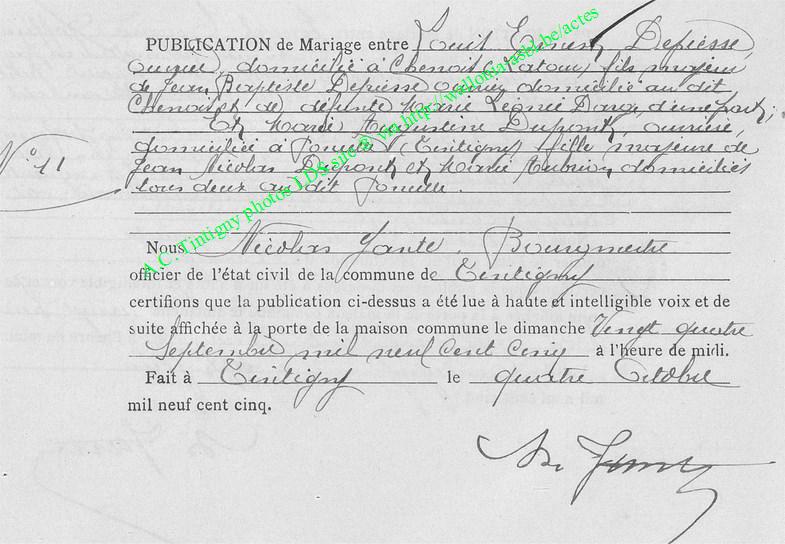 PUBLICATION de Mariage entre Louis Ernest Depiesse,
ouvrier, domicilié à Chenois (Latour) fils majeur
de Jean Baptiste Depiesse ouvrier domicilié au dit
Chenois et de défunte Marie Léonie d'une part;
Et Marie Augustine Dupont, ouvrière,
N° 11
domiciliée à (Tintigny) fille majeure de
Jean Nicolas Dupont et Marie Aubrion domiciliés
tous deux au dit
Nous Nicolas Bourgmestre
officier de l'état civil de la commune de Tintigny
certifions que la publication ci-dessus a été lue à haute et intelligible voix et de
suite affichée à la porte de la maison commune le dimanche Vingt quatre
Septembre mil neuf cent cinq à l'heure de midi.
Fait à Tintigny le quatre Octobre
mil neuf cent cinq.
A.C. Tintigny photos LDS site @ via http://wallonia.asbl.be/actes